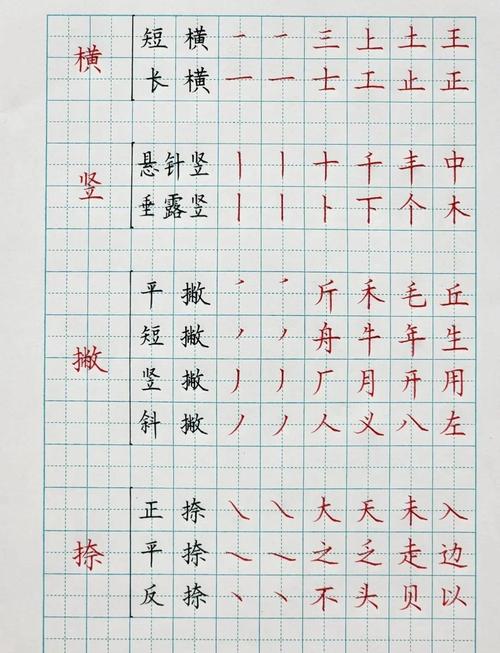 横
短 横 一 一 三 上 土 王
长 横 一 一 士 工 止 正
竖
悬针竖 丨 丨 十 千 丰 中
垂露竖 丨 丨 卜 下 个 木
撇
平 撇 ㇒ ㇒ 斤 禾 毛 丘
短 撇 ㇒ ㇒ 舟 牛 年 生
竖 撇 丿 丿 厂 月 开 用
斜 撇 丿 丿 人 义 八 左
捺
正 捺 ㇏ ㇏ 大 天 未 入
平 捺 ㇏ ㇏ 之 乏 走 边
反 捺 丶 丶 不 头 贝 以